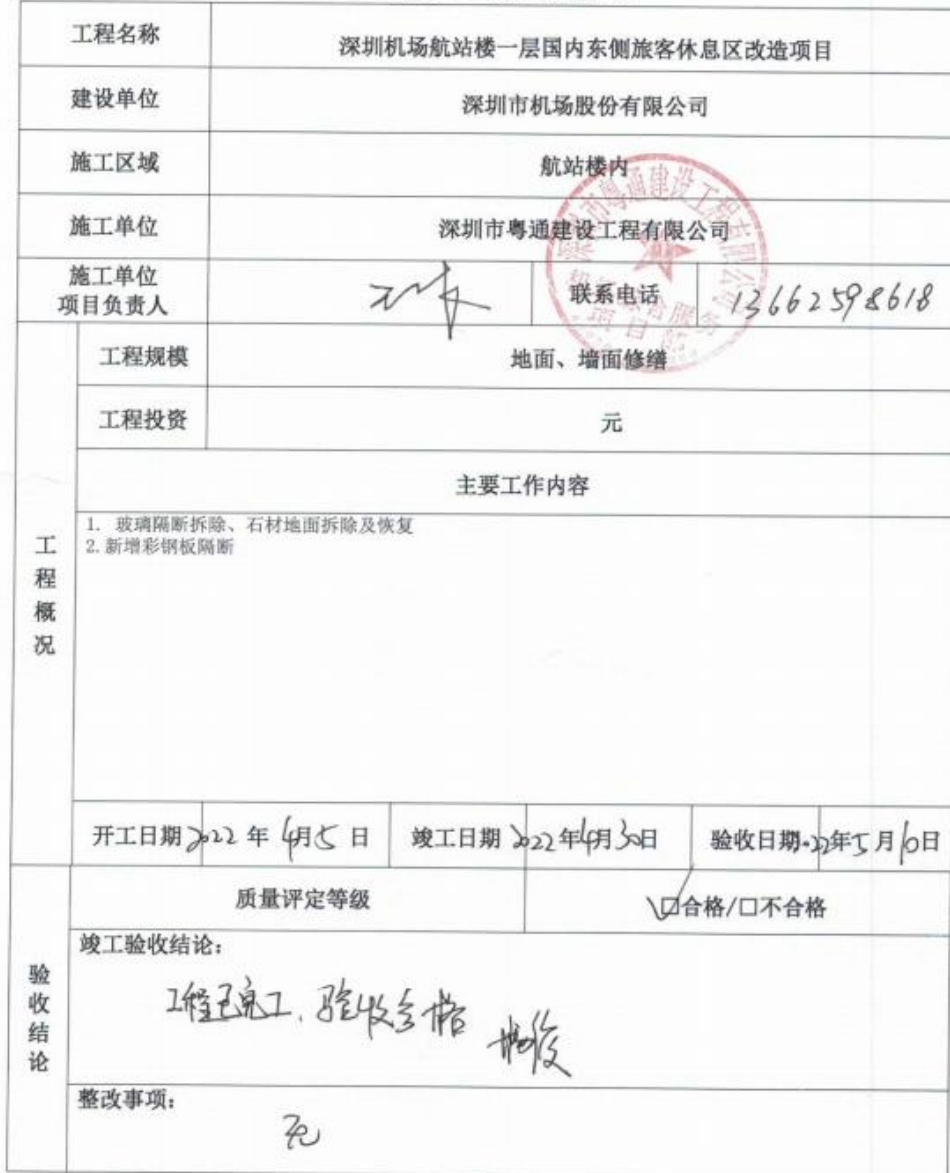 工程名称 深圳机场航站楼一层国内东侧旅客休息区改造项目
建设单位 深圳市机场股份有限公司
施工区域 航站楼内
施工单位 深圳市粤通建设工程有限公司
施工单位
项目负责人 联系电话 13662598618
深圳市粤通建设工程有限公司
工程概况
工程规模 地面、墙面修缮
工程投资 元
主要工作内容
1. 玻璃隔断拆除、石材地面拆除及恢复
2. 新增彩钢板隔断
开工日期 2022 年 4月5 日 竣工日期 2022年4月30日 验收日期 22年5月10日
验收结论
质量评定等级 ☑合格/□不合格
竣工验收结论:
工程已完工、验收合格
整改事项:
无